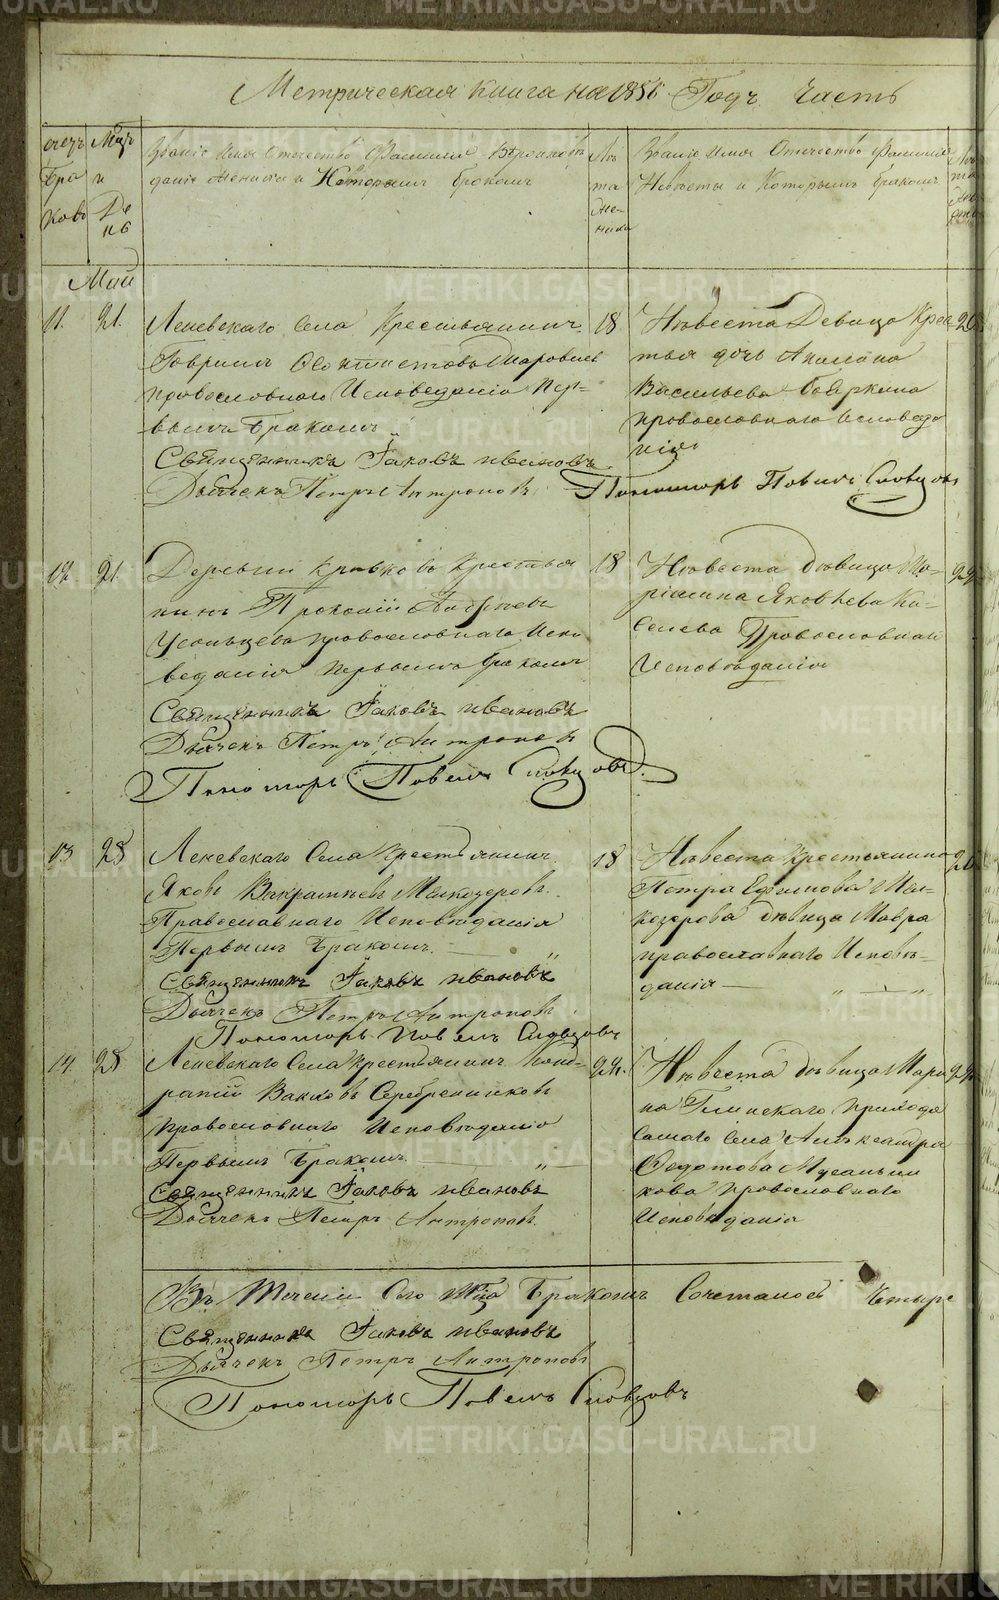 METRIKI.GASO-URAL.RU
Метрическая Книга на 1856 Годъ Часть
счетъ браковъ
Мцъ и День
Званіе Имя Отечество Фамилия Вероисповъданіе Жениха и Которымъ бракомъ
Лъта Жениха
Званіе Имя Отчество Фамилия Невъсты и Которымъ бракомъ
Лъта
Май
11. 21.
Леневскаго Села Крестьянинъ
Гаврилъ
православнаго Исповеданія Пер-
вымъ бракомъ
Священникъ Іаковъ ивановъ
Дьячекъ Петръ Антроповъ
18
Невеста Девица Крес-
тья дочь
Васильева
православнаго исповеда
нія
Пономорь Повелъ Словцовъ
12 21
Деревни Крестья
нинъ Прокопій Андреевъ
Усольцевъ православнаго Испо
веданія Первымъ бракомъ
Священникъ Іаковъ ивановъ
Дьячекъ Петръ Антроповъ
Пономорь Повелъ Словцовъ
18
Невеста дъвица Ма-
ріанна Яковлева Ки-
селева Православнаго
Исповъданія
13 28
Леневскаго Села Крестьянинъ
Яковъ Мелкозеровъ
Православнаго Исповъданія
Первымъ бракомъ
Священникъ Іаковъ ивановъ
Дьячекъ Петръ Антроповъ
Пономорь Повелъ Словцовъ
18
Невеста крестьянина
Петра Ефимова Мел-
козерова дъвица Мавра
православнаго Исповъ-
данія
14 28
Леневскаго Села крестьянинъ Конд-
ратій Серебренниковъ
православнаго Исповъданія
Первымъ бракомъ
Священникъ Іаковъ ивановъ
Дьячекъ Петръ Антроповъ
24.
Невеста дъвица Мари
на Глинскаго прихода
Самаго Села Александра
Федотова
кова православнаго
Исповеданія
Въ Теченіи Сего Мца бракомъ Сочеталось Четыре
Священникъ Іаковъ ивановъ
Дьячекъ Петръ Антроповъ
Пономорь Повелъ Словцовъ